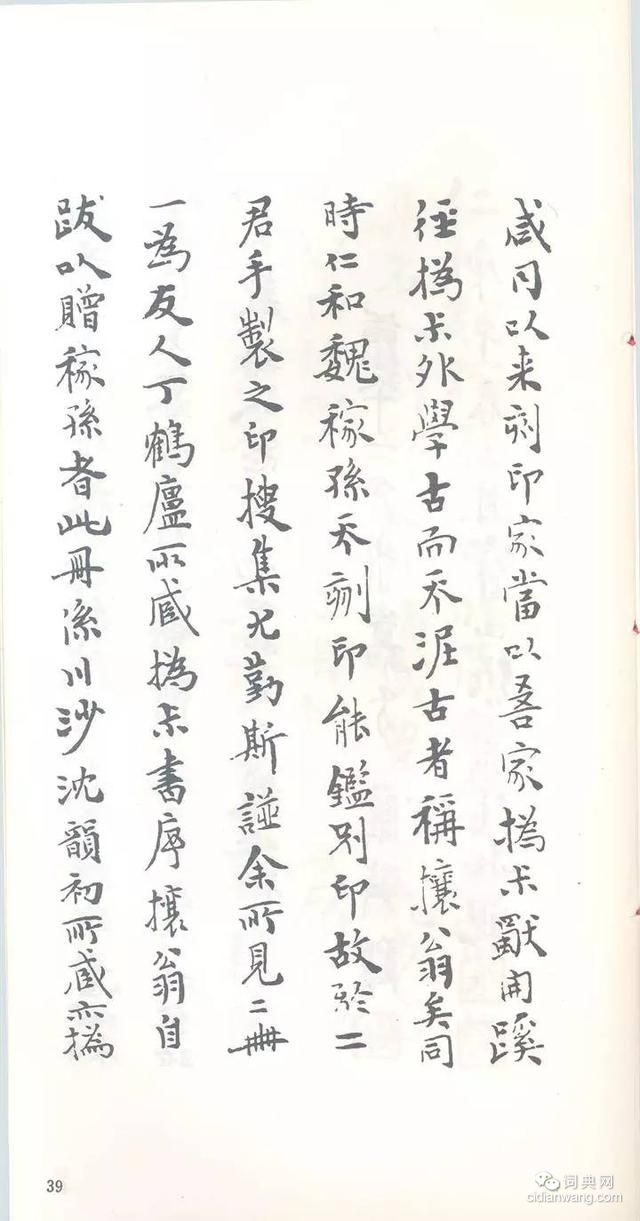 咸同以来刻印家當以吾家撝尗獨開蹊
徑撝尗外學古而不泥古者稱攘翁矣同
時仁和魏稼孫不刻印能鑑別印故於二
君手製之印搜集尤勤斯諩余所見二冊
一為友人丁鶴廬所藏撝尗書序攘翁自
跋以贈稼孫者此冊係川沙沈韻初所藏亦撝
39
词典网
cidianwang.com